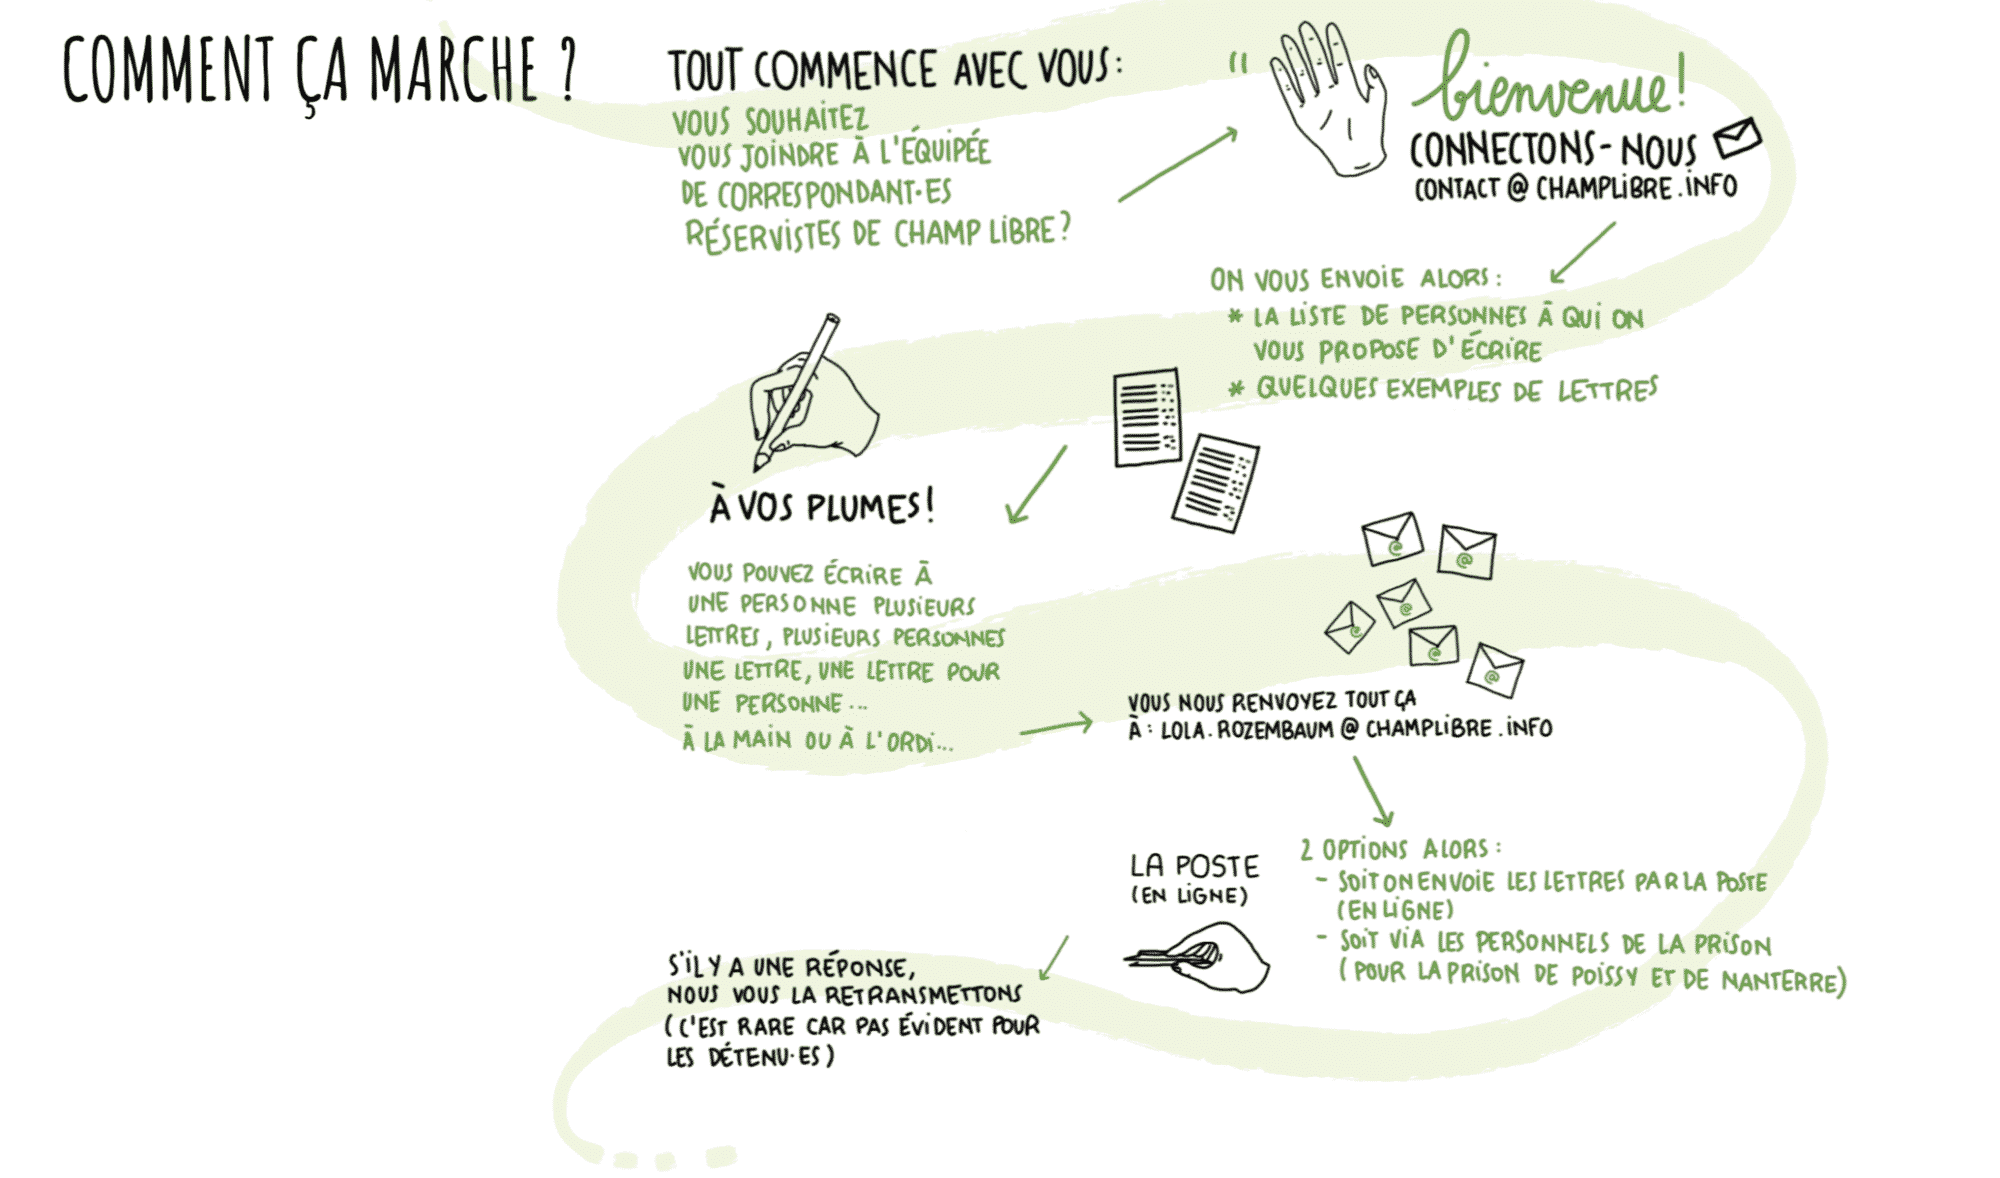 COMMENT ÇA MARCHE ?
TOUT COMMENCE AVEC VOUS :
VOUS SOUHAITEZ
VOUS JOINDRE À L'ÉQUIPÉE
DE CORRESPONDANT·ES
RÉSERVISTES DE CHAMP LIBRE ?
"
bienvenue !
CONNECTONS-NOUS
CONTACT @ CHAMPLIBRE.INFO
ON VOUS ENVOIE ALORS :
* LA LISTE DE PERSONNES À QUI ON
VOUS PROPOSE D'ÉCRIRE
* QUELQUES EXEMPLES DE LETTRES
À VOS PLUMES !
VOUS POUVEZ ÉCRIRE À
UNE PERSONNE PLUSIEURS
LETTRES, PLUSIEURS PERSONNES
UNE LETTRE, UNE LETTRE POUR
UNE PERSONNE...
À LA MAIN OU À L'ORDI...
@
@
@
@
@
@
VOUS NOUS RENVOYEZ TOUT ÇA
À : LOLA.ROZEMBAUM @ CHAMPLIBRE.INFO
2 OPTIONS ALORS :
- SOIT ON ENVOIE LES LETTRES PAR LA POSTE
(EN LIGNE)
- SOIT VIA LES PERSONNELS DE LA PRISON
(POUR LA PRISON DE POISSY ET DE NANTERRE)
LA POSTE
(EN LIGNE)
S'IL Y A UNE RÉPONSE,
NOUS VOUS LA RETRANSMETTONS
(C'EST RARE CAR PAS ÉVIDENT POUR
LES DÉTENU·ES)